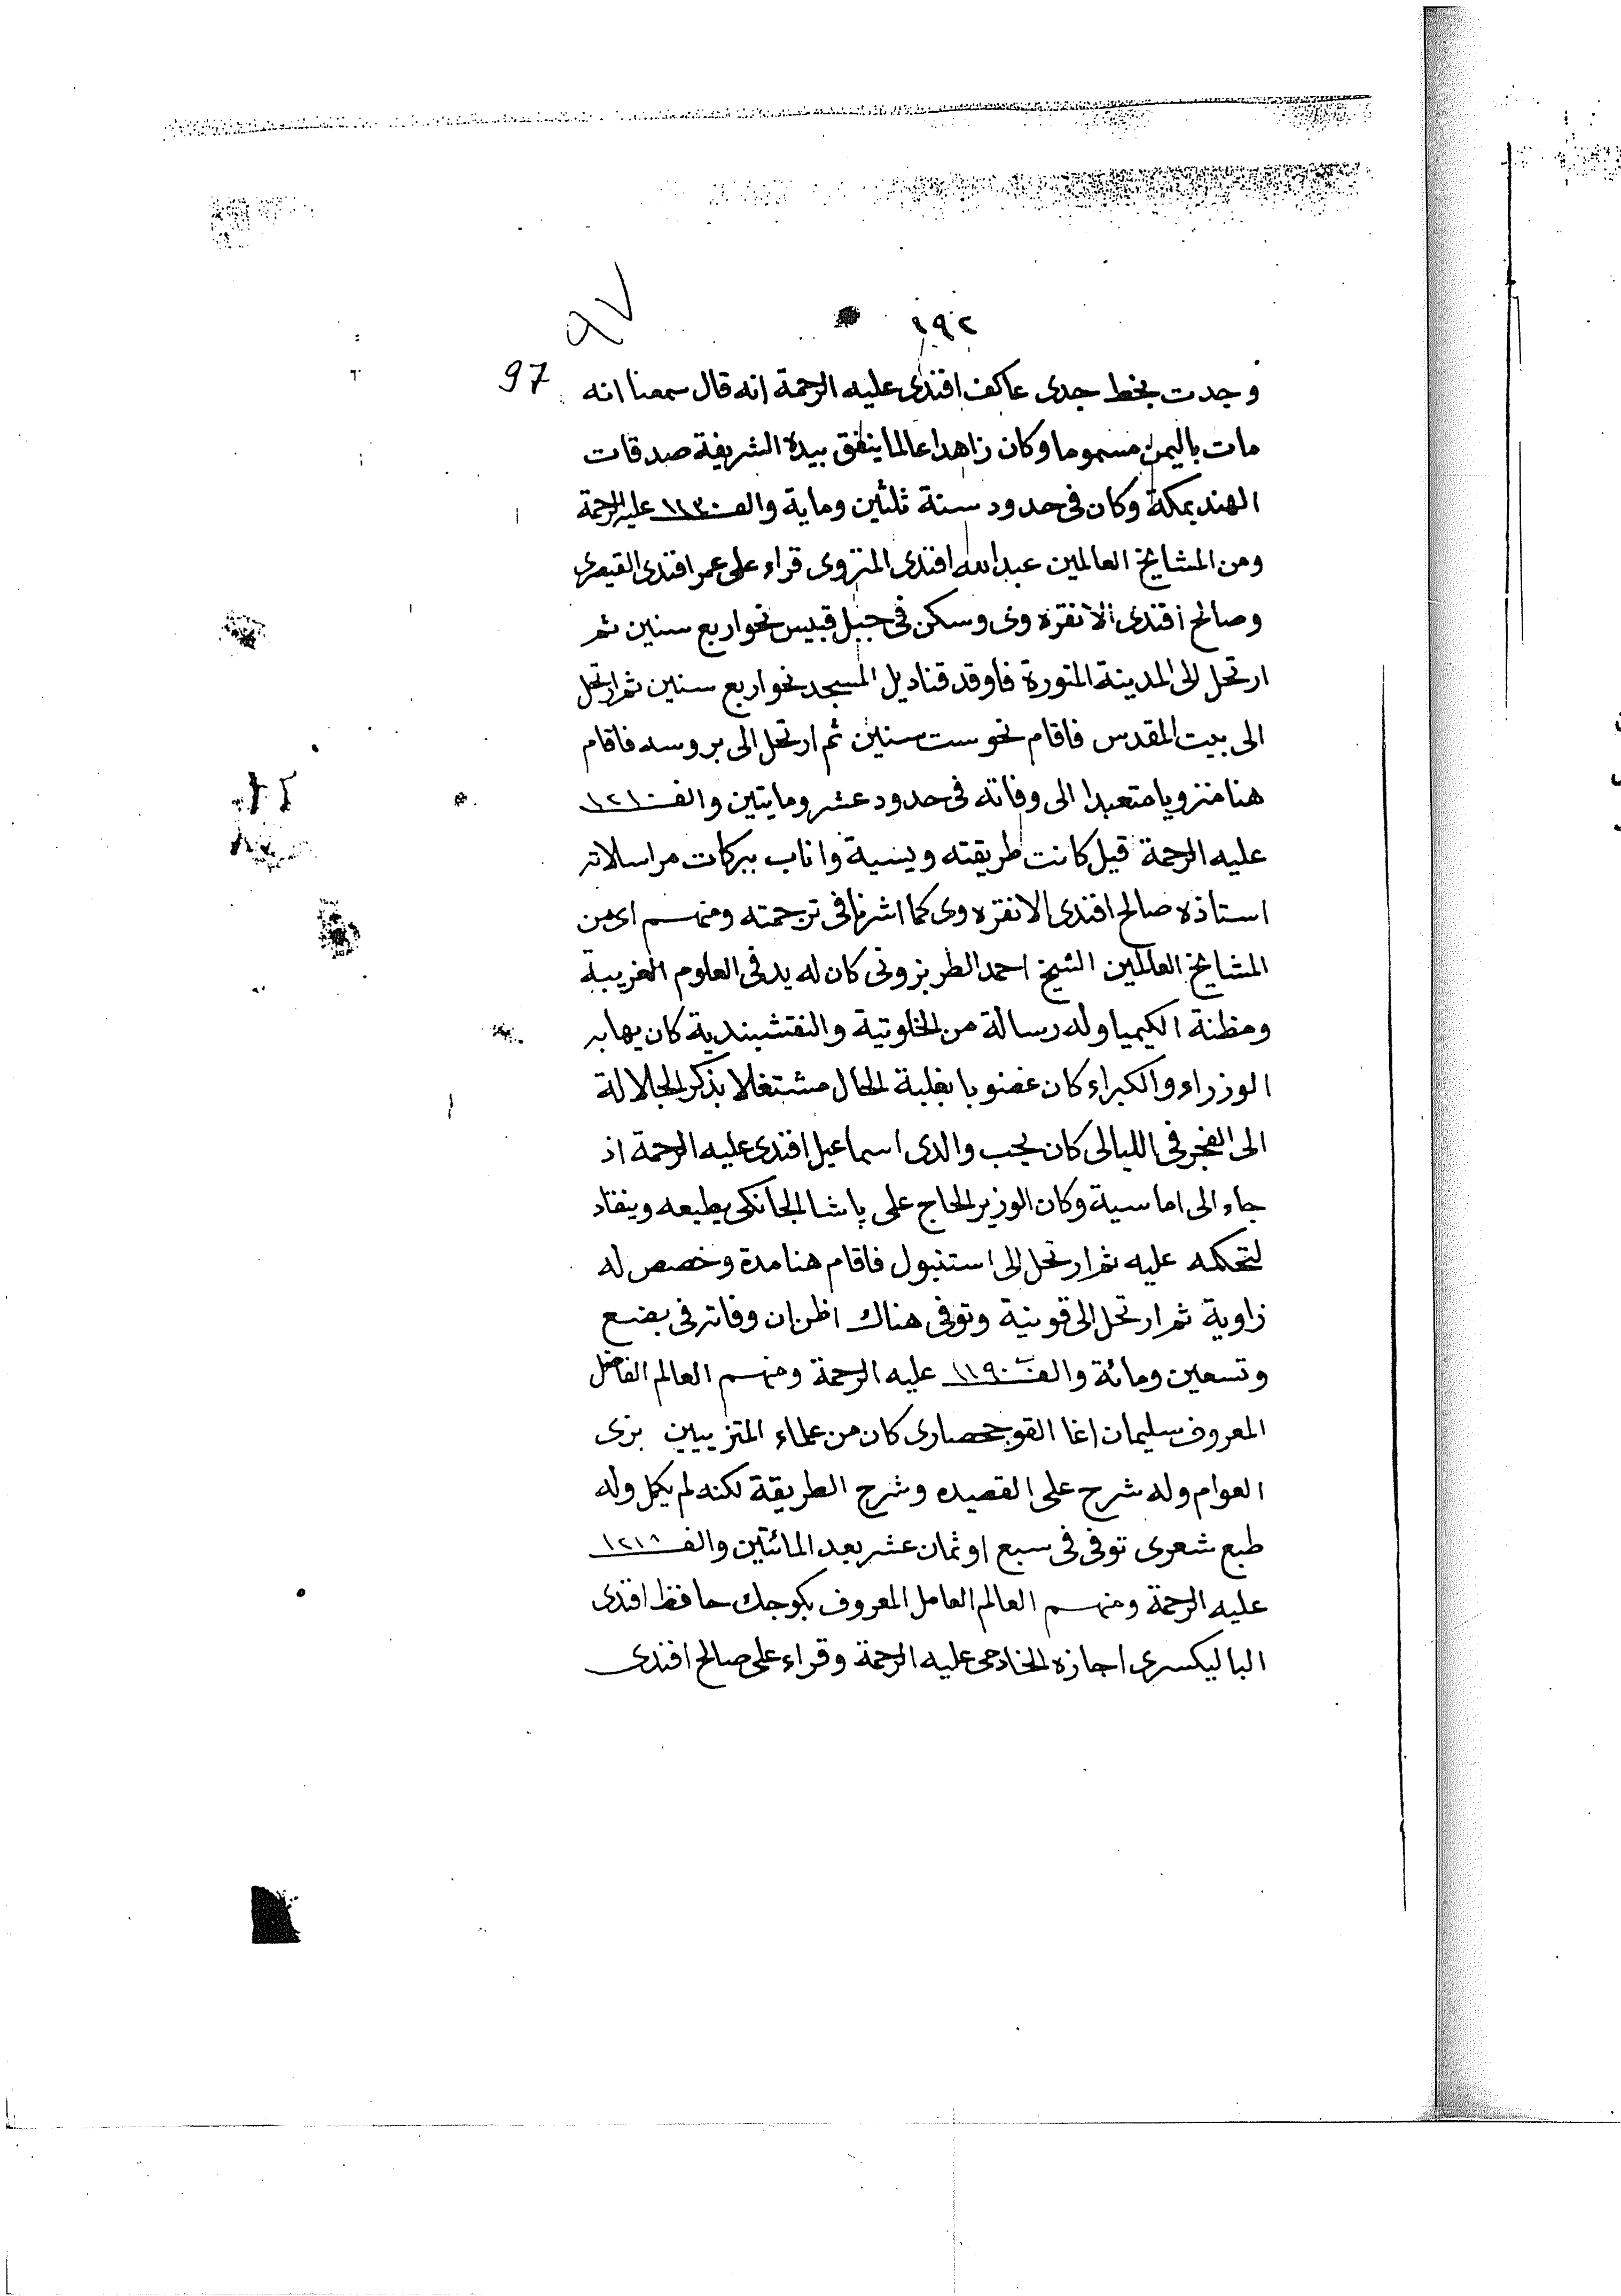 ١٩٢
٩٧
97
وجدت بخط جدى عاكف افندى عليه الرحمة انه قال سمعنا انه
مات باليمن مسموما وكان زاهدا عالما ينفق بيده الشريفة صدقات
الهند بمكة وكان فى حدود سنة ثلثين وماية والف ١١٣٠ عليه الرحمة
ومن المشايخ العالمين عبد الله افندى المنزوى قراء على عمر افندى القيصرى
وصالح افندى الانقره وى وسكن فى جبل قبيس نحو اربع سنين ثم
ارتحل الى المدينة المنورة فاوقد قناديل المسجد نحو اربع سنين ثم ارتحل
الى بيت المقدس فاقام نحو ست سنين ثم ارتحل الى بروسه فاقام
هنا منزويا متعبدا الى وفاته فى حدود عشر ومايتين والف ١٢١٠
عليه الرحمة قيل كانت طريقته ويسية واناب ببركات مراسلاته
استاذه صالح افندى الانقره وى كما اشرنا فى ترجمته ومنهم اى من
المشايخ العالمين الشيخ احمد الطربزونى كان له يد فى العلوم الغريبة
ومظنة الكيميا وله رسالة من الخلوتية والنقشبندية كان يهابه
الوزراء والكبراء كان غضوبا بغلبة الحال مشتغلا بذكر الجلالة
الى الفجر فى الليالى كان يحب والدى اسماعيل افندى عليه الرحمة اذ
جاء الى اماسية وكان الوزير الحاج على پاشا الجانكى يطيعه وينقاد
لتحكمه عليه ثم ارتحل الى استنبول فاقام هنا مدة وخصص له
زاوية ثم ارتحل الى قونية وتوفى هناك اظن ان وفاته فى بضع
وتسعين ومائة والف ١١٩٠ عليه الرحمة ومنهم العالم الفاضل
المعروف سليمان اغا القوجحصارى كان من علماء المتزييين بزى
العوام وله شرح على القصيده وشرح الطريقة لكنه لم يكمل وله
طبع شعرى توفى فى سبع او ثمان عشر بعد المائتين والف ١٢١٨
عليه الرحمة ومنهم العالم العامل المعروف بكوجك حافظ افندى
الباليكسرى اجازه الخادمى عليه الرحمة وقراء على صالح افندى